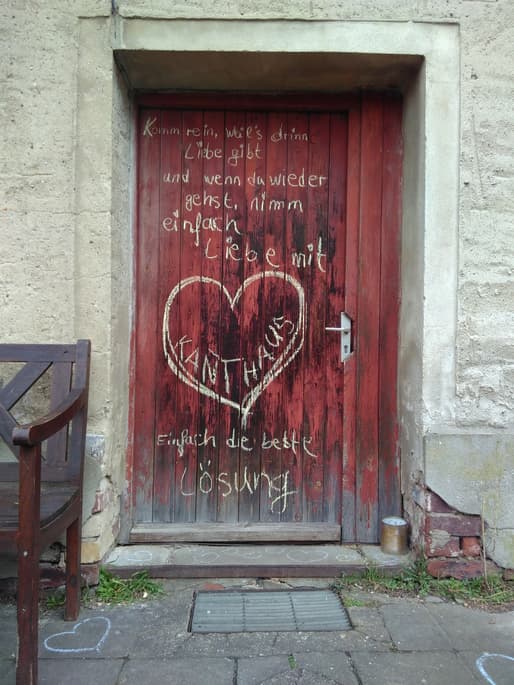 Komm rein, weil's drinn
Liebe gibt
und wenn du wieder
gehst, nimm
einfach
Liebe mit
KANTHAUS
Einfach die beste
Lösung